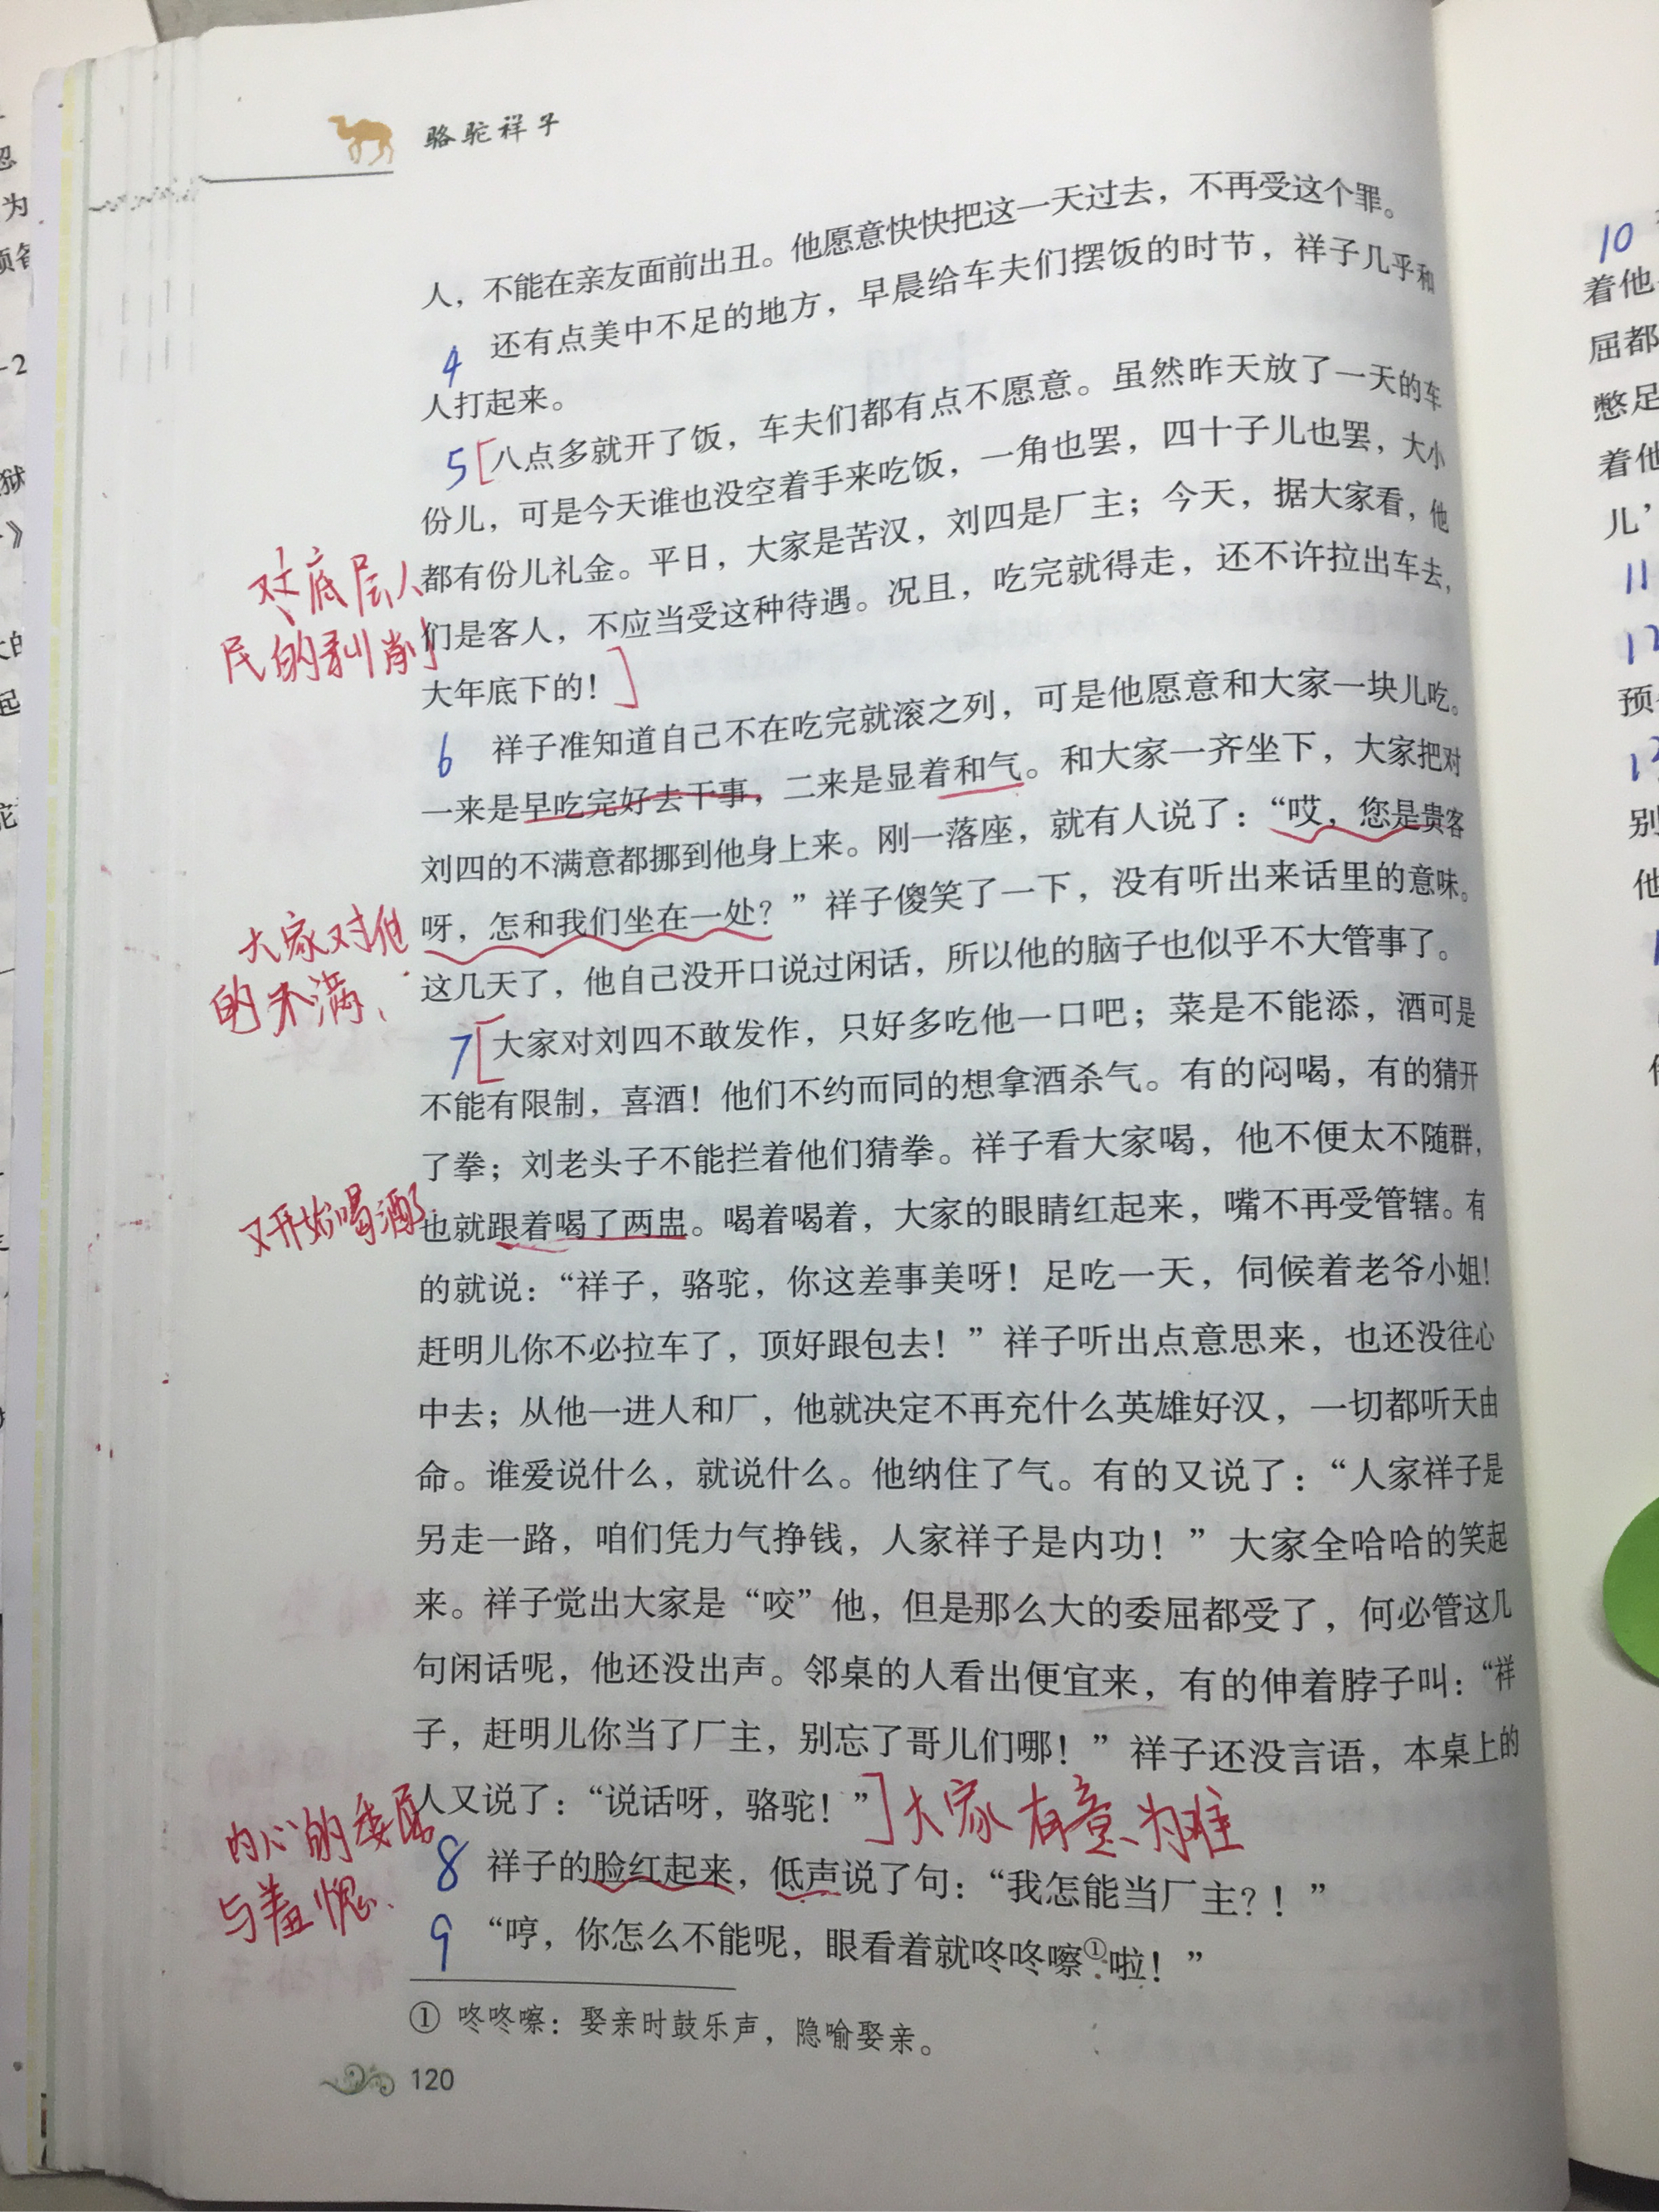 骆驼祥子
人，不能在亲友面前出丑。他愿意快快把这一天过去，不再受这个罪。
4 还有点美中不足的地方，早晨给车夫们摆饭的时节，祥子几乎和
人打起来。
5[八点多就开了饭，车夫们都有点不愿意。虽然昨天放了一天的车
份儿，可是今天谁也没空着手来吃饭，一角也罢，四十子儿也罢，大小
都有份儿礼金。平日，大家是苦汉，刘四是厂主；今天，据大家看，他
们是客人，不应当受这种待遇。况且，吃完就得走，还不许拉出车去，
大年底下的！]
对底层人
民的剥削
6 祥子准知道自己不在吃完就滚之列，可是他愿意和大家一块儿吃。
一来是早吃完好去干事，二来是显着和气。和大家一齐坐下，大家把对
刘四的不满意都挪到他身上来。刚一落座，就有人说了：“哎，您是贵客
呀，怎和我们坐在一处？”祥子傻笑了一下，没有听出来话里的意味。
这几天了，他自己没开口说过闲话，所以他的脑子也似乎不大管事了。
大家对他
的不满、
7[大家对刘四不敢发作，只好多吃他一口吧；菜是不能添，酒可是
不能有限制，喜酒！他们不约而同的想拿酒杀气。有的闷喝，有的猜开
了拳；刘老头子不能拦着他们猜拳。祥子看大家喝，他不便太不随群，
也就跟着喝了两盅。喝着喝着，大家的眼睛红起来，嘴不再受管辖。有
的就说：“祥子，骆驼，你这差事美呀！足吃一天，伺候着老爷小姐！
赶明儿你不必拉车了，顶好跟包去！”祥子听出点意思来，也还没往心
中去；从他一进人和厂，他就决定不再充什么英雄好汉，一切都听天由
命。谁爱说什么，就说什么。他纳住了气。有的又说了：“人家祥子是
另走一路，咱们凭力气挣钱，人家祥子是内功！”大家全哈哈的笑起
来。祥子觉出大家是“咬”他，但是那么大的委屈都受了，何必管这几
句闲话呢，他还没出声。邻桌的人看出便宜来，有的伸着脖子叫：“祥
子，赶明儿你当了厂主，别忘了哥儿们哪！”祥子还没言语，本桌上的
人又说了：“说话呀，骆驼！”]大家有意为难
又开始喝酒了
8 祥子的脸红起来，低声说了句：“我怎能当厂主？！”
内心的委屈
与羞愧、
9 “哼，你怎么不能呢，眼看着就咚咚嚓①啦！”
① 咚咚嚓：娶亲时鼓乐声，隐喻娶亲。
120
10
着他
屈都
憋足
着他
儿’
11
12
预
别
他